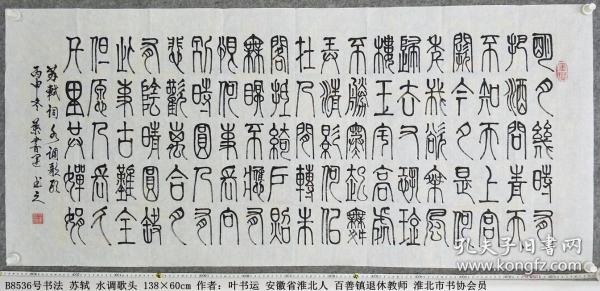 明月幾時有
把酒問青天
不知天上宮
闕今夕是何
年我欲乘風
歸去又恐瓊
樓玉宇高處
不勝寒起舞
弄清影何似
在人間轉朱
閣低綺戶照
無眠不應有
恨何事長向
別時圓人有
悲歡離合月
有陰晴圓缺
此事古難全
但願人長久
千里共嬋娟
蘇軾詞水调歌頭
丙申冬葉書運
孔夫子旧书网
B8536号书法 苏轼 水调歌头 138×60cm 作者：叶书运 安徽省淮北人 百善镇退休教师 淮北市书协会员